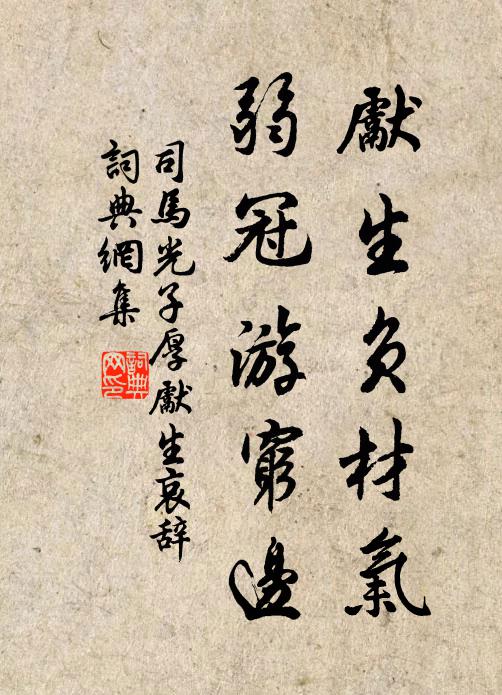 獻生負材氣
弱冠游窮邊
司馬光子厚獻生哀辞
詞典網集
詞典網印